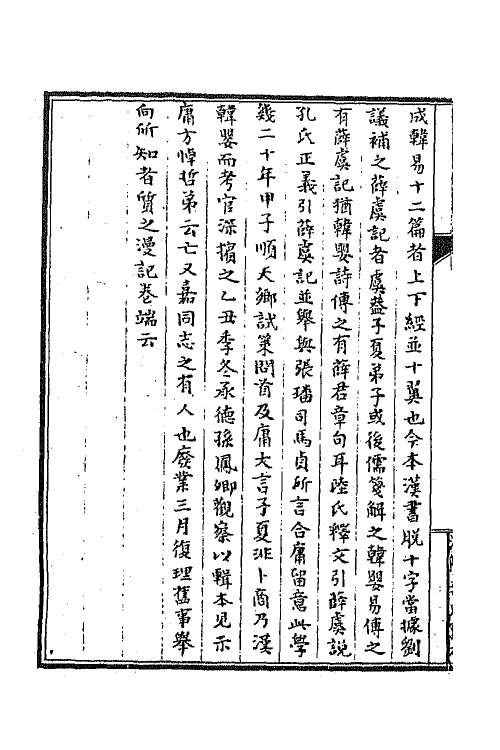 成韓易十二篇者上下經並十翼也今本漢書脫十字當據劉
議補之薛虞記者虞蓋子夏弟子或後儒箋解之韓嬰易傳之
有薛虞記猶韓嬰詩傳之有薛君章句耳陸氏釋文引薛虞說
孔氏正義引薛虞記並舉與張璠司馬貞所言合庸留意此學
幾二十年甲子順天鄉試策問首及庸大言子夏非卜商乃漢
韓嬰而考官深擯之乙丑季冬承德孫鳳卿觀察以輯本見示
庸方悼哲弟云亡又嘉同志之有人也廢業三月復理舊事舉
向所知者質之漫記卷端云